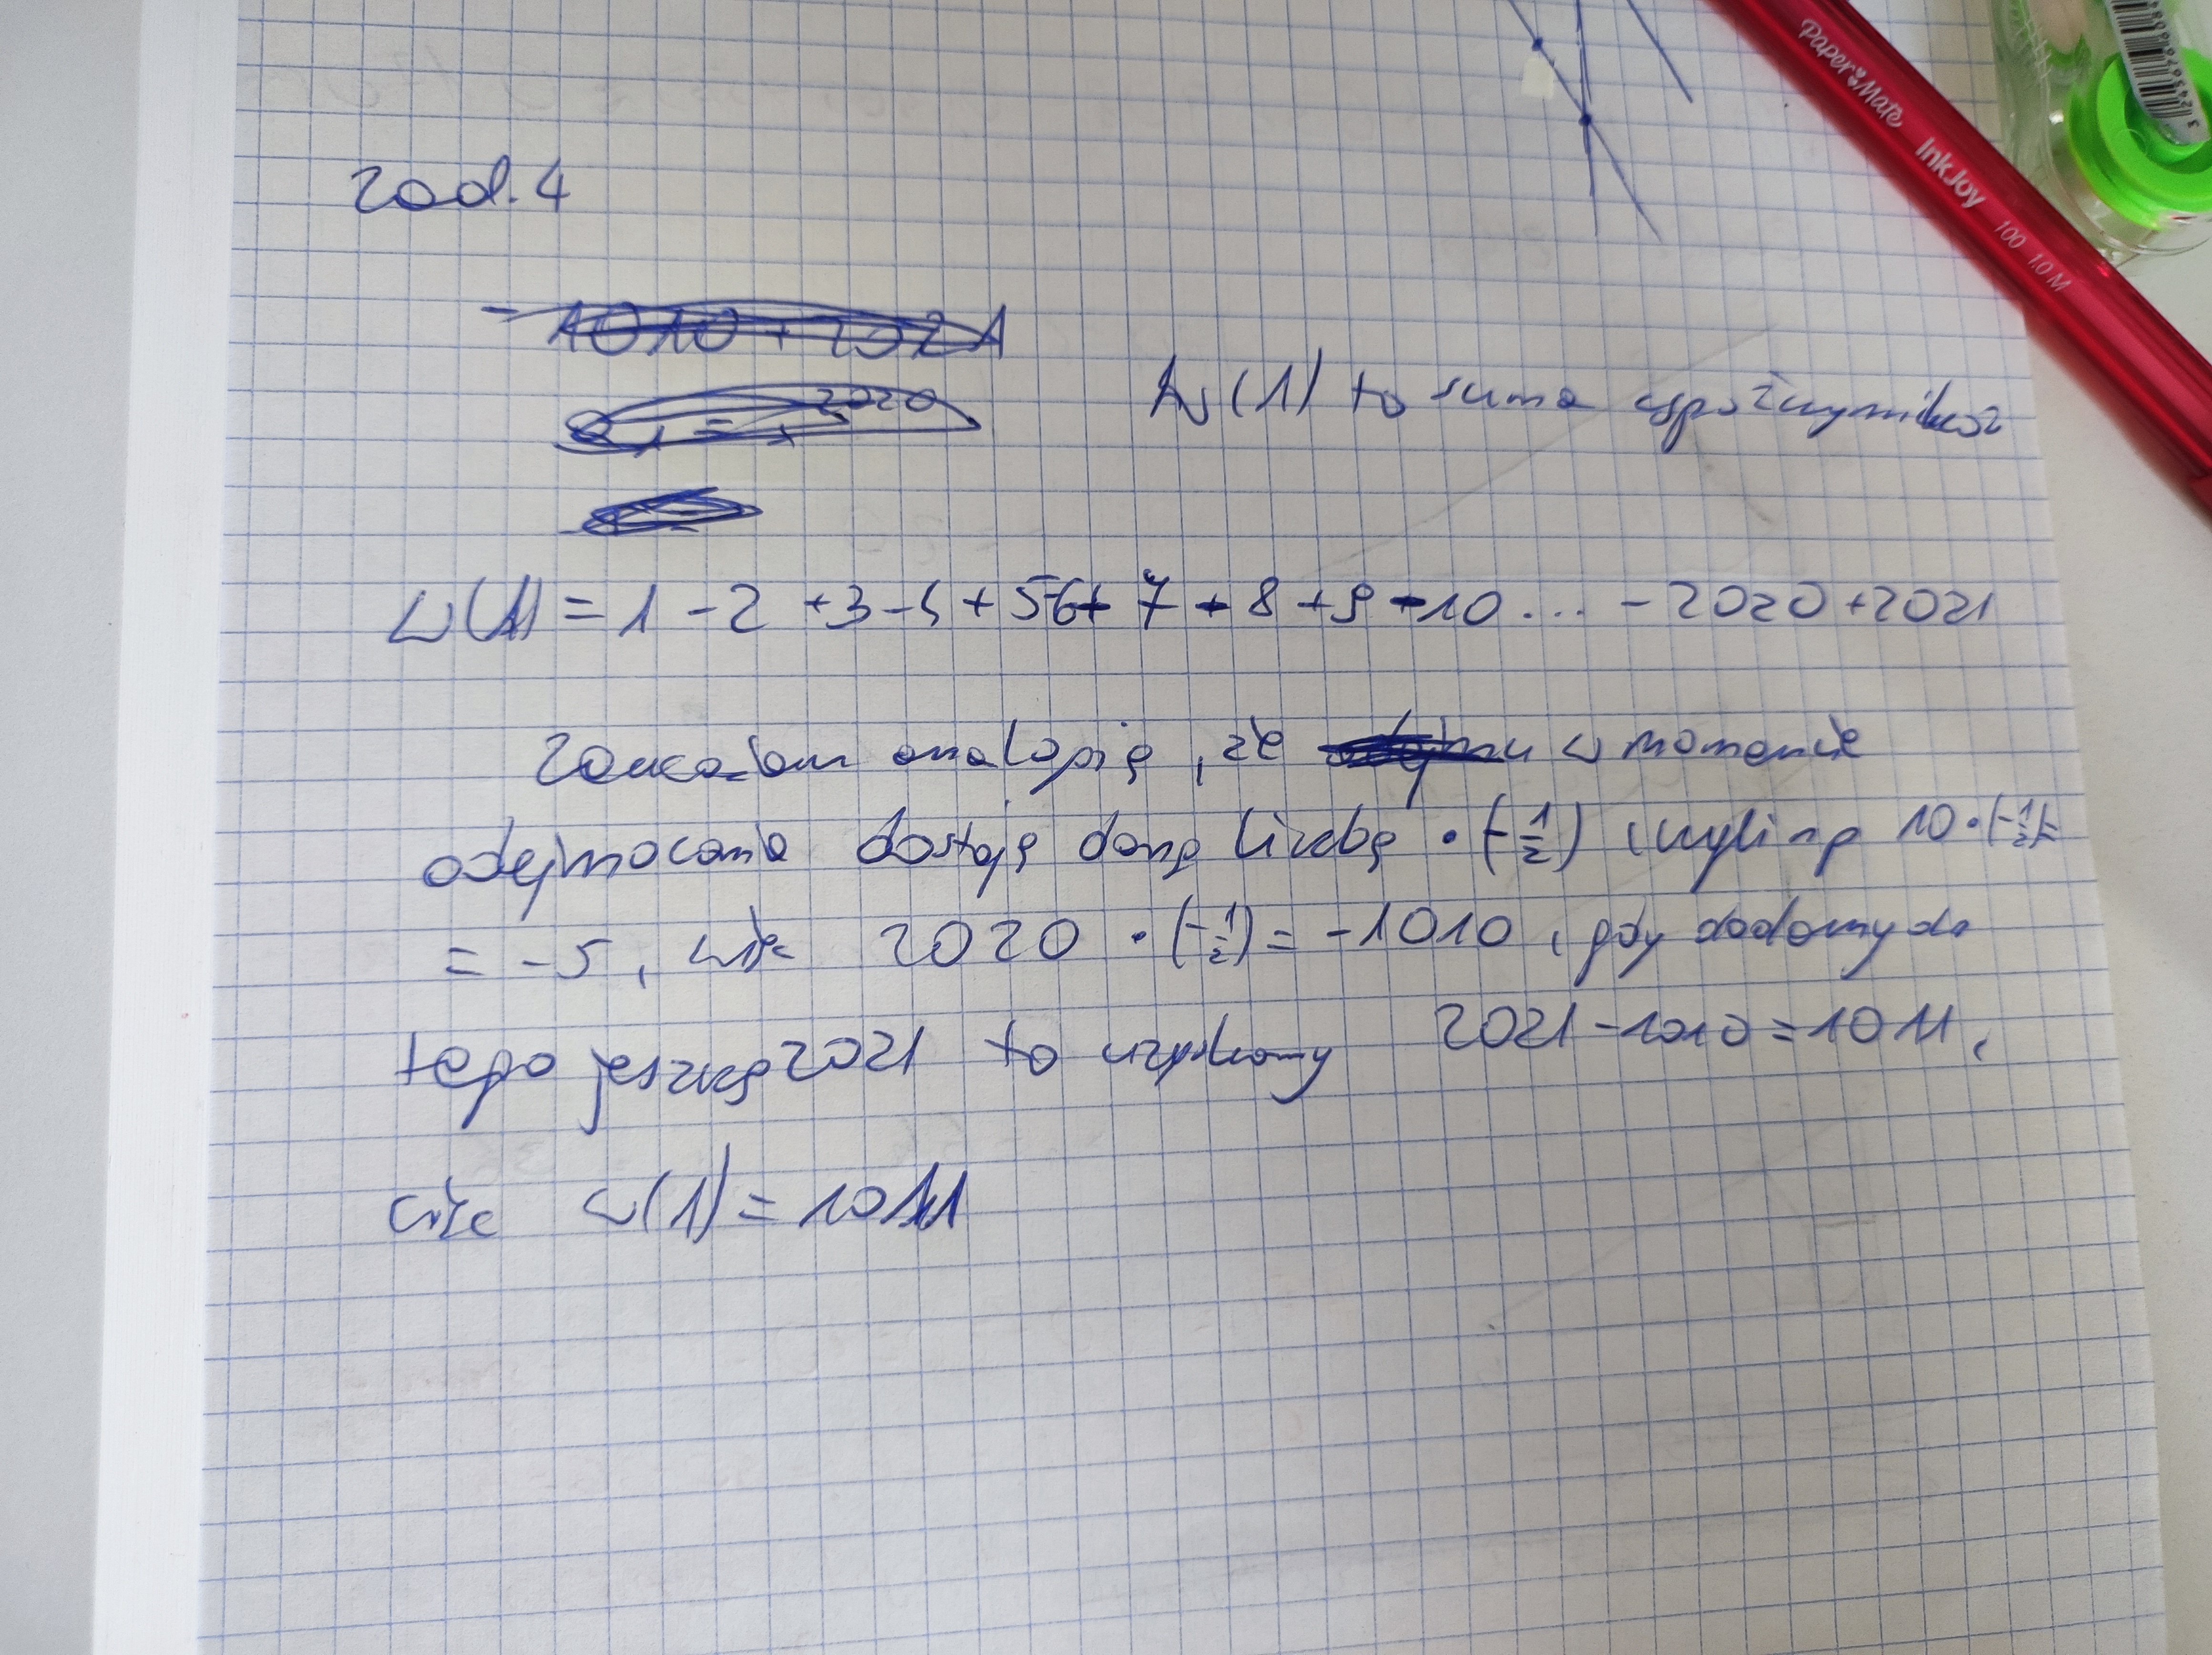 Paper Mate InkJoy 100 1.0 M
zad. 4
- 1010 + 2021
2020
W(1) to suma współczynników
W(1) = 1 - 2 + 3 - 4 + 5 - 6 + 7 - 8 + 9 - 10 ... - 2020 + 2021
Zauważam analogię, że w momencie
odejmowania dostaję daną liczbę · (-1/2) czyli np 10 · (-1/2) =
= -5, więc 2020 · (-1/2) = -1010, gdy dodamy do
tego jeszcze 2021 to uzyskamy 2021 - 1010 = 1011,
więc W(1) = 1011